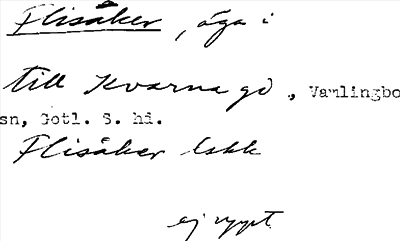 Flisåker, äga i
till Kvarna gd., Vamlingbo
sn, Gotl. S. hd.
Flisåker Lskk
ej uppt.